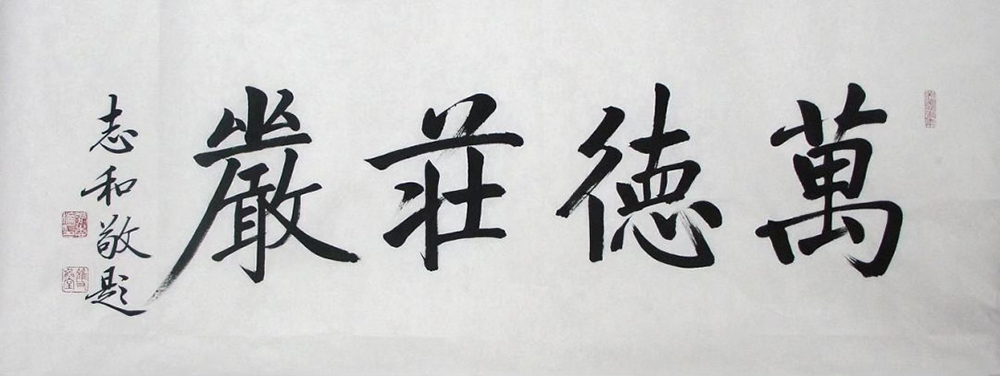 萬德莊嚴
志和敬題